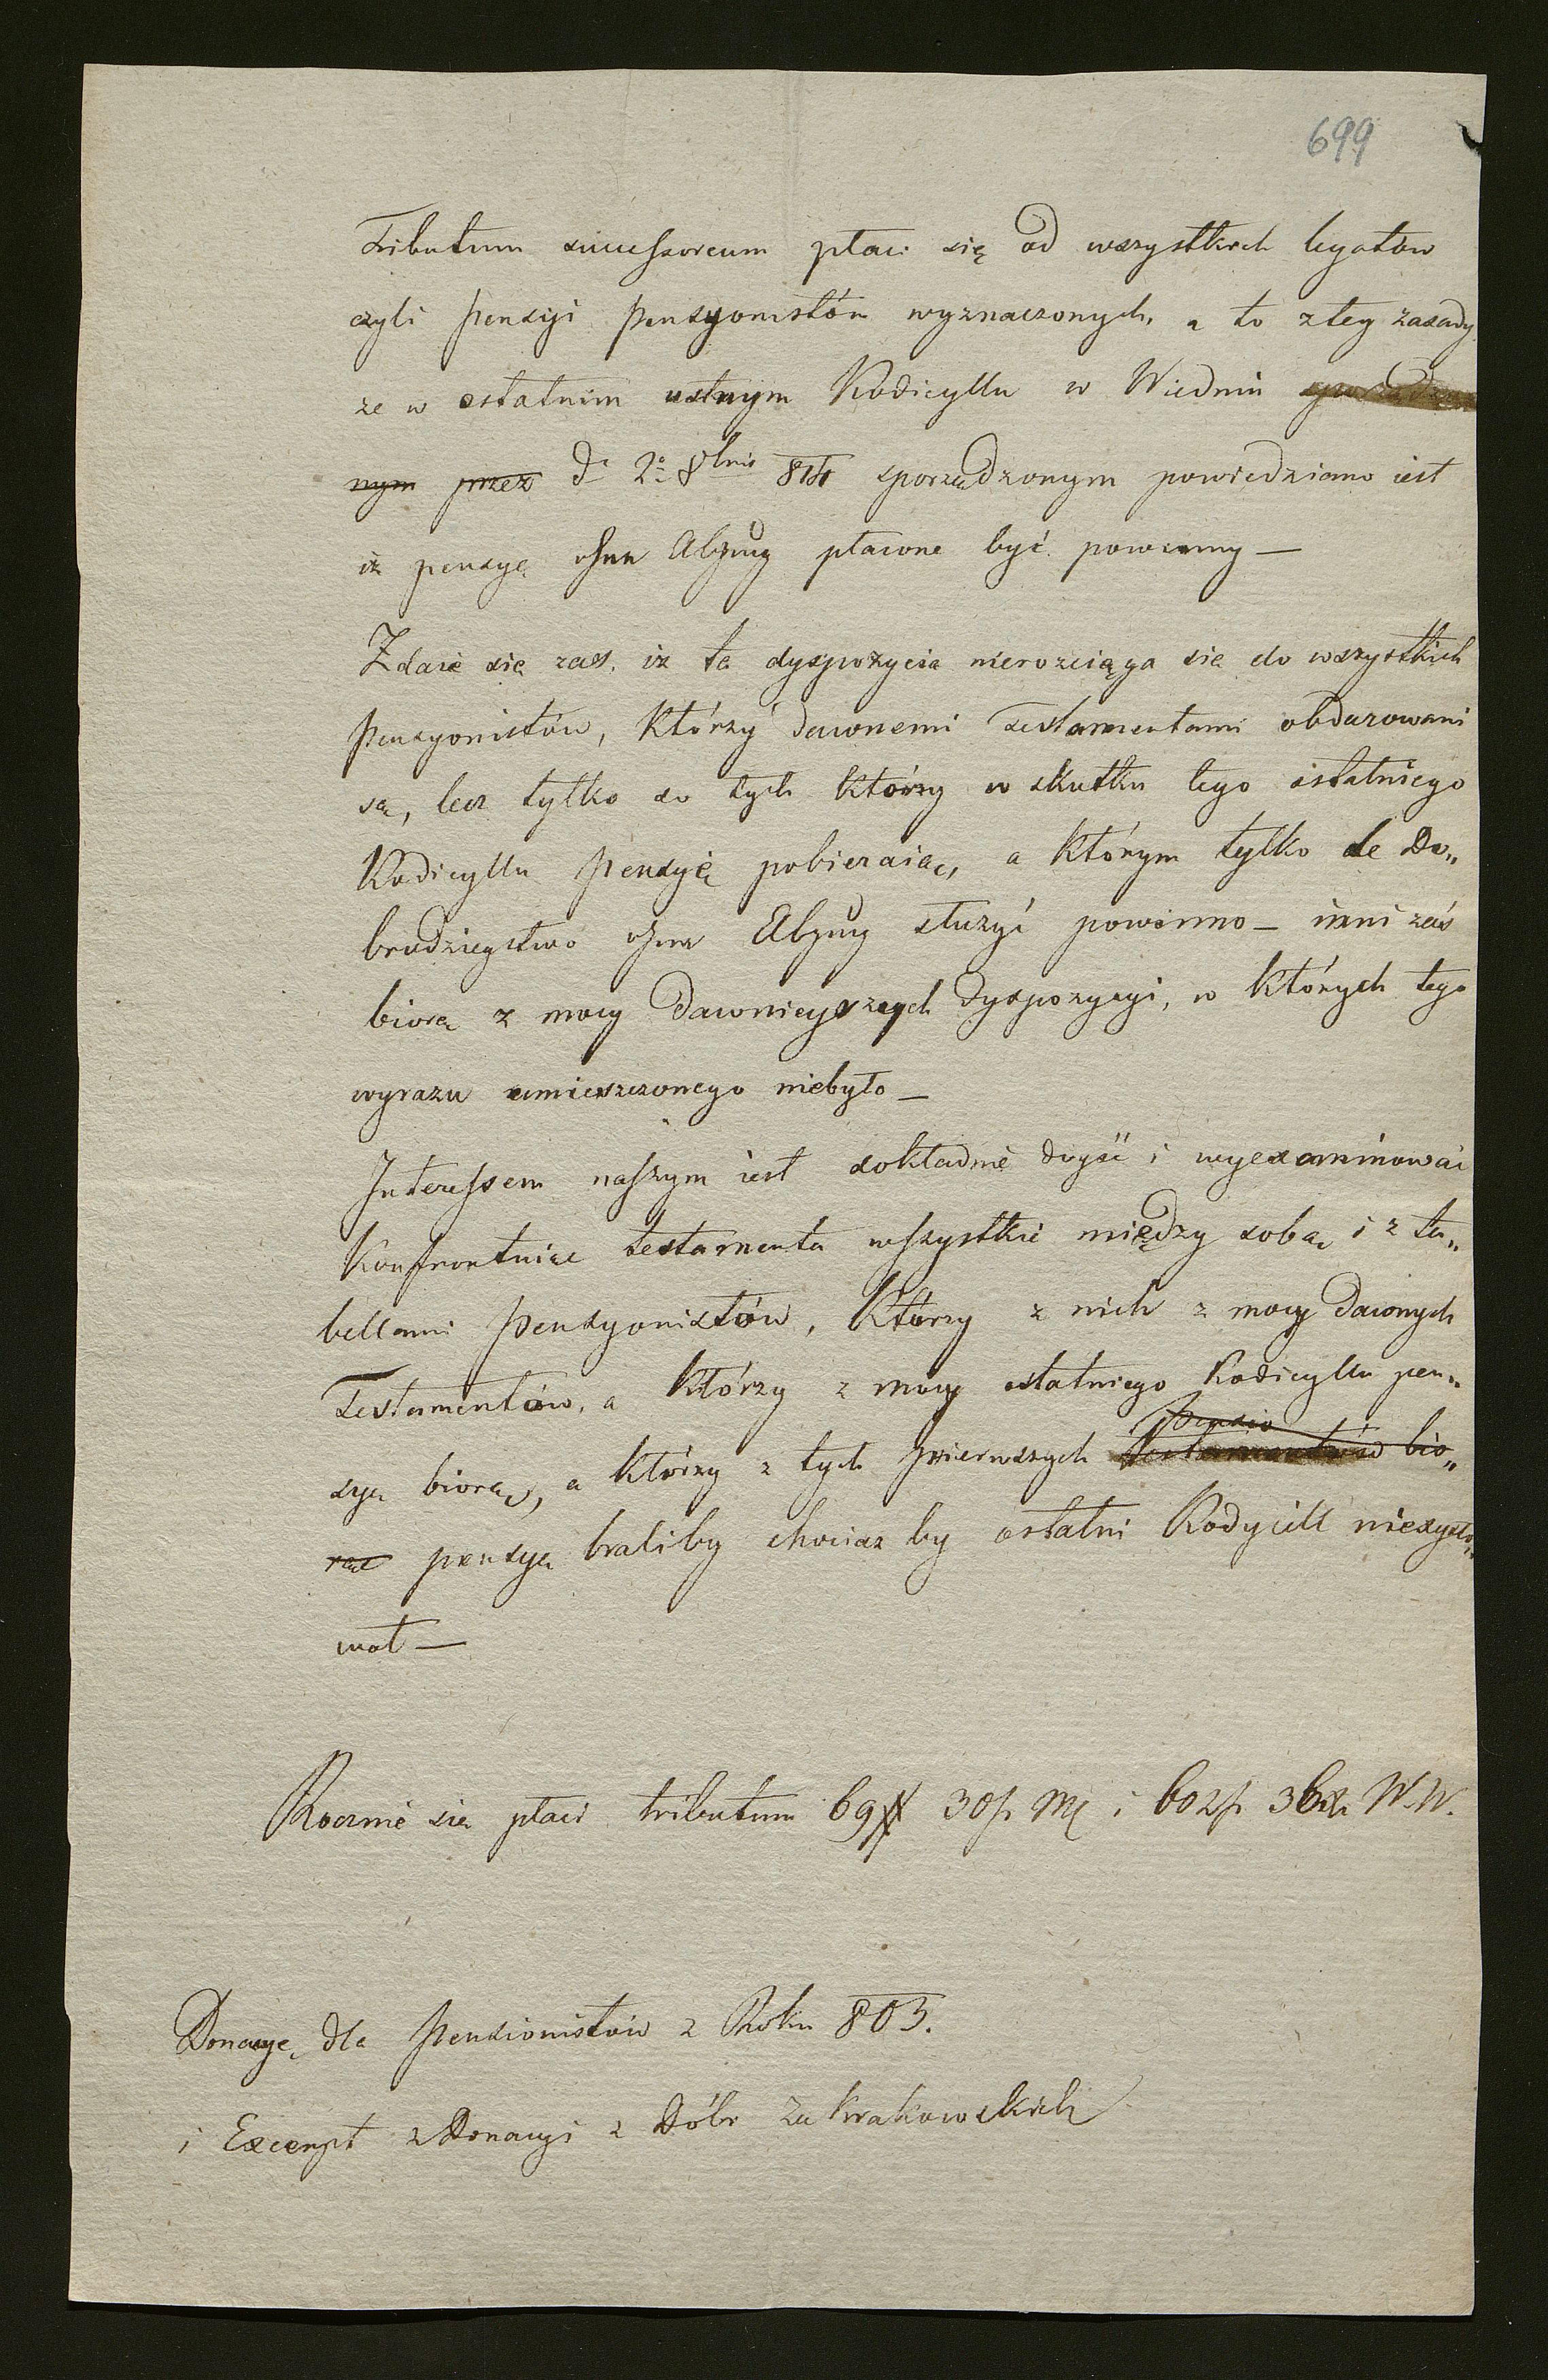 699
Tributum successoreum płaci się od wszystkich legatów
czyli pensyi pensyonistów wyznaczonych, a to z tey zasady
że w ostatnim ustnym Kodicyllu w Wiedniu sporządzo
nym przez d. 2º 8bris 814 sporządzonym powiedziano iest
iż pensye ohne Abzug płacone być powinny —
Zdaie się zaś, iż ta dyspozycia nierozciąga się do wszystkich
pensyonistów, którzy dawnemi Testamentami obdarowani
są, lecz tylko do tych którzy w skutku tego ostatniego
Kodicyllu pensyię pobieraią, a którym tylko te Do„
brodzieystwo ohne Abzug służyć powinno — inni zaś
biorą z mocy dawnieyszych dyspozycyi, w których tego
wyrazu umieszczonego niebyło —
Interessem naszym iest dokładnie doyść i wyexaminować
Konfrontuiąc testamenta wszystkie między sobą i z ta„
bellami pensyonistów, którzy z nich z mocy dawnych
Testamentów, a którzy z mocy ostatniego Kodicyllu pen„
pensio
syą biorą, a którzy z tych pierwszych Testamentów bio„
rąc pensyą braliby chociaż by ostatni Kodycill nieexysto„
wał —
Rocznie się płaci tributum 69 # 30 p Mę i 602 p 36 x W. W.
Donacye dla pensionistów z Roku 803.
i Excerpt z Donacyi z Dóbr Zakrakowskich